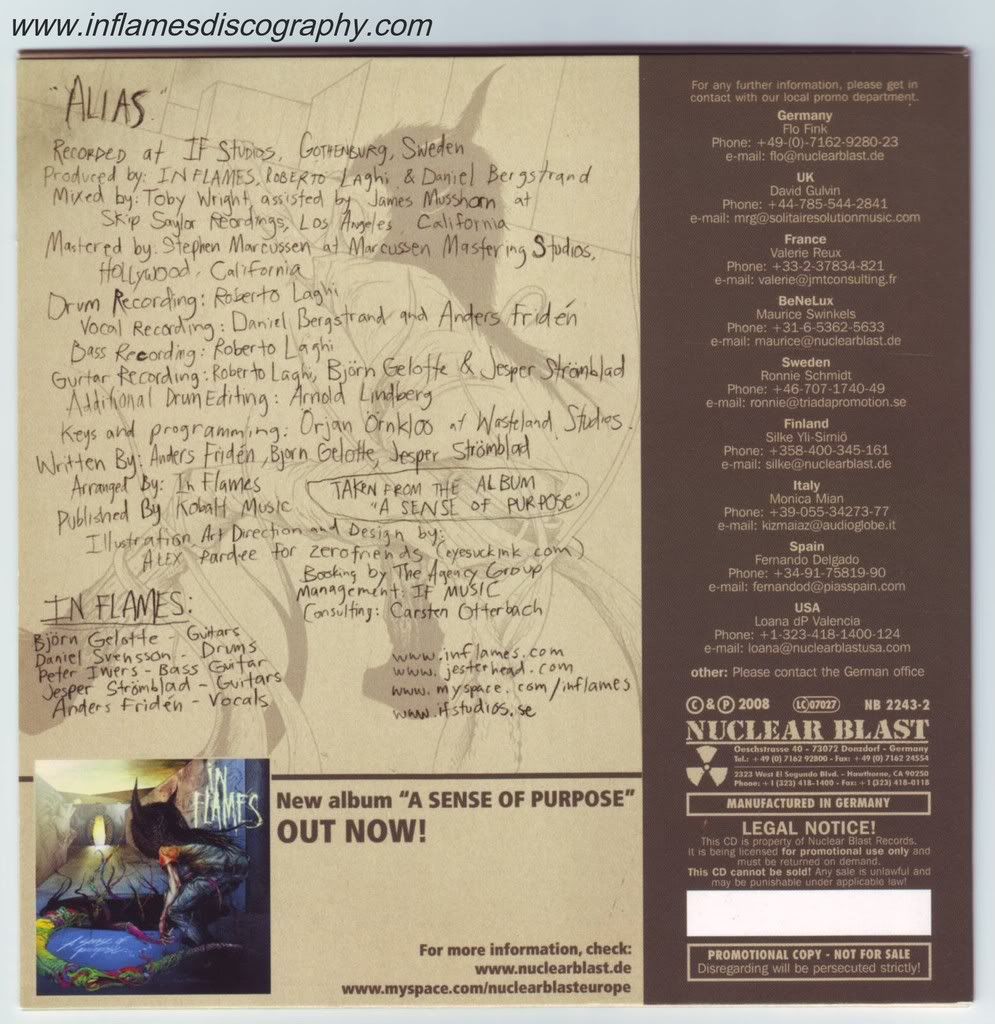 www.inflamesdiscography.com
"ALIAS"
Recorded at IF Studios, Gothenburg, Sweden
Produced by: IN FLAMES, Roberto Laghi & Daniel Bergstrand
Mixed by: Toby Wright, assisted by James Musshorn at
Skip Saylor Recordings, Los Angeles, California
Mastered by: Stephen Marcussen at Marcussen Mastering Studios,
Hollywood, California
Drum Recording: Roberto Laghi
Vocal Recording: Daniel Bergstrand and Anders Fridén
Bass Recording: Roberto Laghi
Guitar Recording: Roberto Laghi, Björn Gelotte & Jesper Strömblad
Additional Drum Editing: Arnold Lindberg
Keys and programming: Örjan Örnkloo at Wasteland Studios.
Written By: Anders Fridén, Björn Gelotte, Jesper Strömblad
Arranged By: In Flames
Published By Kobalt Music
TAKEN FROM THE ALBUM
"A SENSE OF PURPOSE"
Illustration, Art Direction and Design by:
ALEX Pardee for zerofriends (eyesuckink.com)
Booking by The Agency Group
Management: IF MUSIC
Consulting: Carsten Otterbach
IN FLAMES:
Björn Gelotte - Guitars
Daniel Svensson - Drums
Peter Iwers - Bass Guitar
Jesper Strömblad - Guitars
Anders Fridén - Vocals
www.inflames.com
www.jesterhead.com
www.myspace.com/inflames
www.ifstudios.se
IN
FLAMES
A Sense of
Purpose
New album "A SENSE OF PURPOSE"
OUT NOW!
For more information, check:
www.nuclearblast.de
www.myspace.com/nuclearblasteurope
For any further information, please get in
contact with our local promo department.
Germany
Flo Fink
Phone: +49-(0)-7162-9280-23
e-mail: flo@nuclearblast.de
UK
David Gulvin
Phone: +44-785-544-2841
e-mail: mrg@solitairesolutionmusic.com
France
Valerie Reux
Phone: +33-2-37834-821
e-mail: valerie@jmtconsulting.fr
BeNeLux
Maurice Swinkels
Phone: +31-6-5362-5633
e-mail: maurice@nuclearblast.de
Sweden
Ronnie Schmidt
Phone: +46-707-1740-49
e-mail: ronnie@triadapromotion.se
Finland
Silke Yli-Simiö
Phone: +358-400-345-161
e-mail: silke@nuclearblast.de
Italy
Monica Mian
Phone: +39-055-34273-77
e-mail: kizmaiaz@audioglobe.it
Spain
Fernando Delgado
Phone: +34-91-75819-90
e-mail: fernandod@piasspain.com
USA
Loana dP Valencia
Phone: +1-323-418-1400-124
e-mail: loana@nuclearblastusa.com
other: Please contact the German office
©&℗ 2008 LC 07027 NB 2243-2
NUCLEAR BLAST
Oeschstrasse 40 - 73072 Donzdorf - Germany
Tel.: +49 (0) 7162 92800 - Fax: +49 (0) 7162 24554
2323 West El Segundo Blvd. - Hawthorne, CA 90250
Phone: +1 (323) 418-1400 - Fax: +1 (323) 418-0118
MANUFACTURED IN GERMANY
LEGAL NOTICE!
This CD is property of Nuclear Blast Records.
It is being licensed for promotional use only and
must be returned on demand.
This CD cannot be sold! Any sale is unlawful and
may be punishable under applicable law!
PROMOTIONAL COPY - NOT FOR SALE
Disregarding will be persecuted strictly!